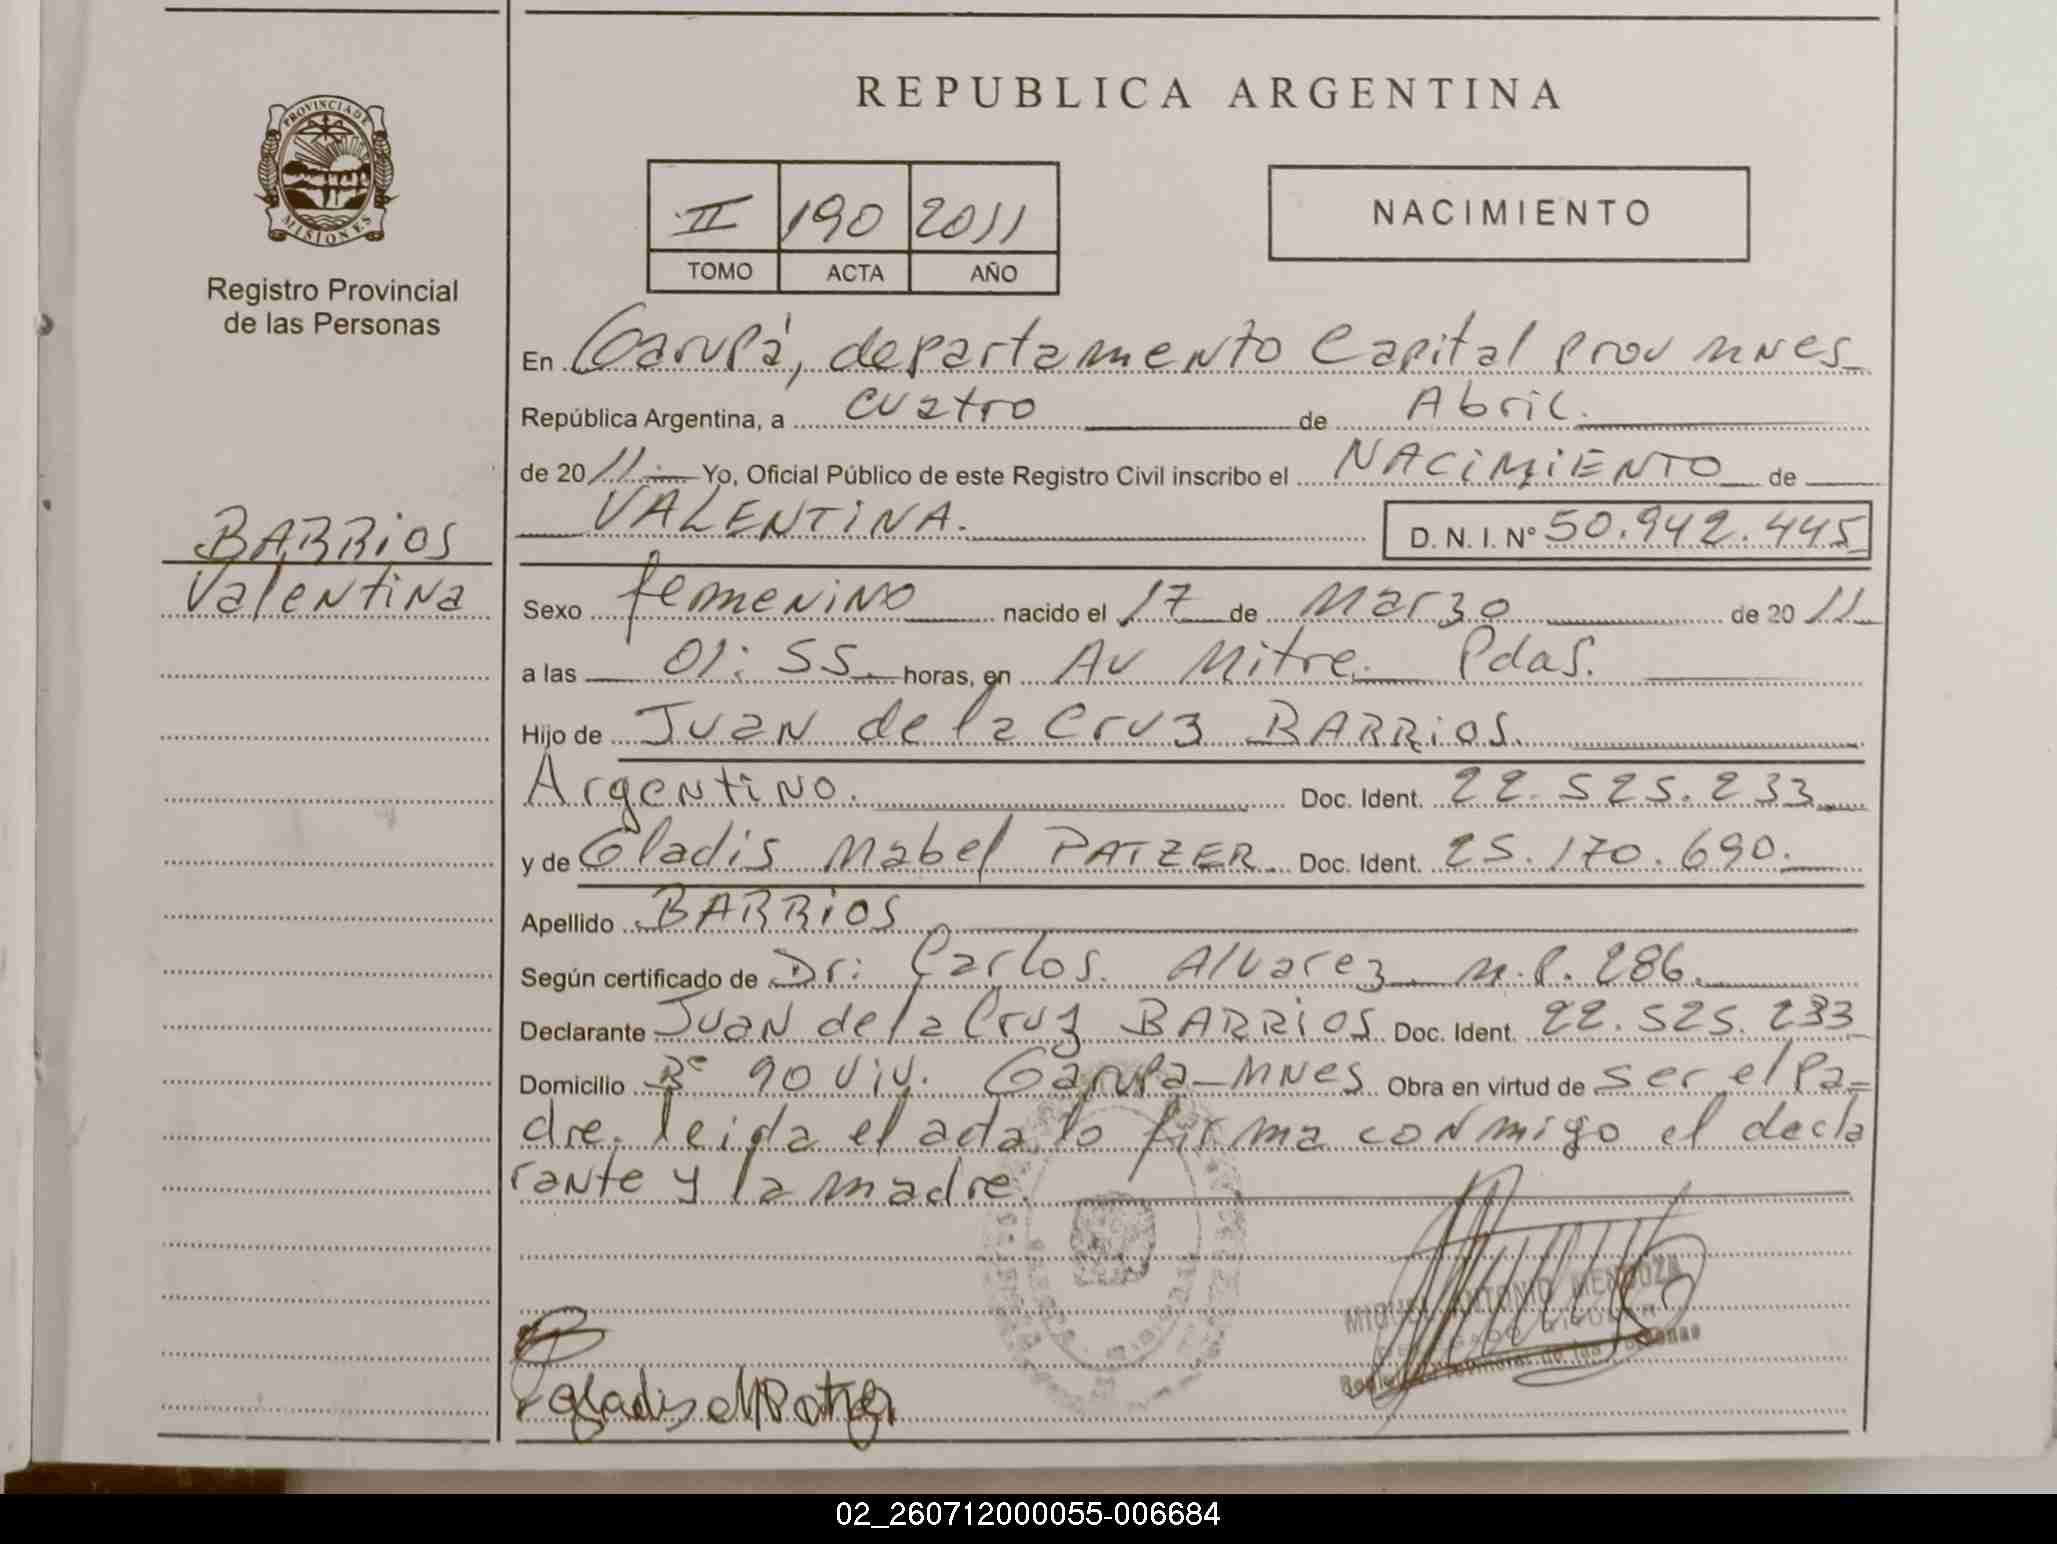 REPUBLICA ARGENTINA
PROVINCIA DE
MISIONES
Registro Provincial
de las Personas
II 190 2011
TOMO ACTA AÑO
NACIMIENTO
En Garupá, departamento Capital prov mnes
República Argentina, a cuatro de Abril.
de 2011.- Yo, Oficial Público de este Registro Civil inscribo el NACIMIENTO de
VALENTINA. D. N. I. Nº 50.942.445
BARRIOS
Valentina
Sexo femenino nacido el 17 de Marzo de 2011
a las 01:55. horas, en Av Mitre. Pdas.
Hijo de Juan de la Cruz BARRIOS.
Argentino. Doc. Ident. 22.525.233
y de Gladis Mabel PATZER. Doc. Ident. 25.170.690.
Apellido BARRIOS
Según certificado de Dr: Carlos. Alvarez. M.P. 286.
Declarante Juan de la Cruz BARRIOS Doc. Ident. 22.525.233
Domicilio Bº 90 viv. Garupa-mnes Obra en virtud de ser el Pa=
dre. leida el acta lo firma conmigo el decla
rante y la madre.
MIGUEL ANTONIO MENDOZA
DELEGADO TITULAR
Registro Provincial de las Personas
gladis M Patzer
02_260712000055-006684